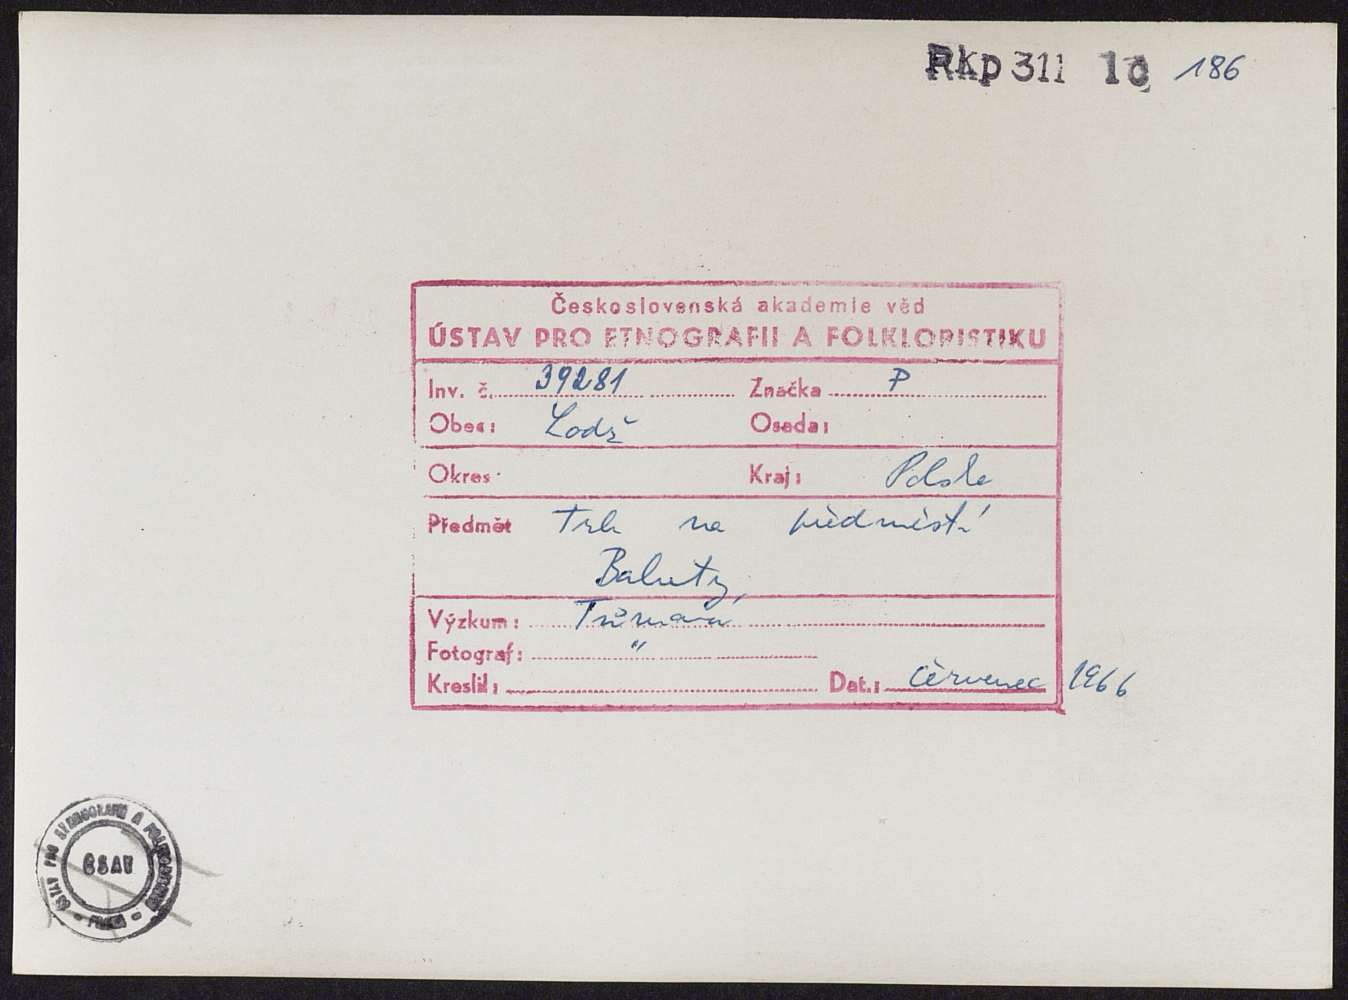 Rkp 311 1č 186
Československá akademie věd
ÚSTAV PRO ETNOGRAFII A FOLKLORISTIKU
Inv. č. 39281 Značka P
Obec: Lodž Osada:
Okres Kraj: Polsko
Předmět Trh na předměstí
Baluty,
Výzkum:
Fotograf: "
Kreslil: Dat.: červenec 1966
ÚSTAV PRO ETNOGRAFII A FOLKLORISTIKU
ČSAV
PRAHA